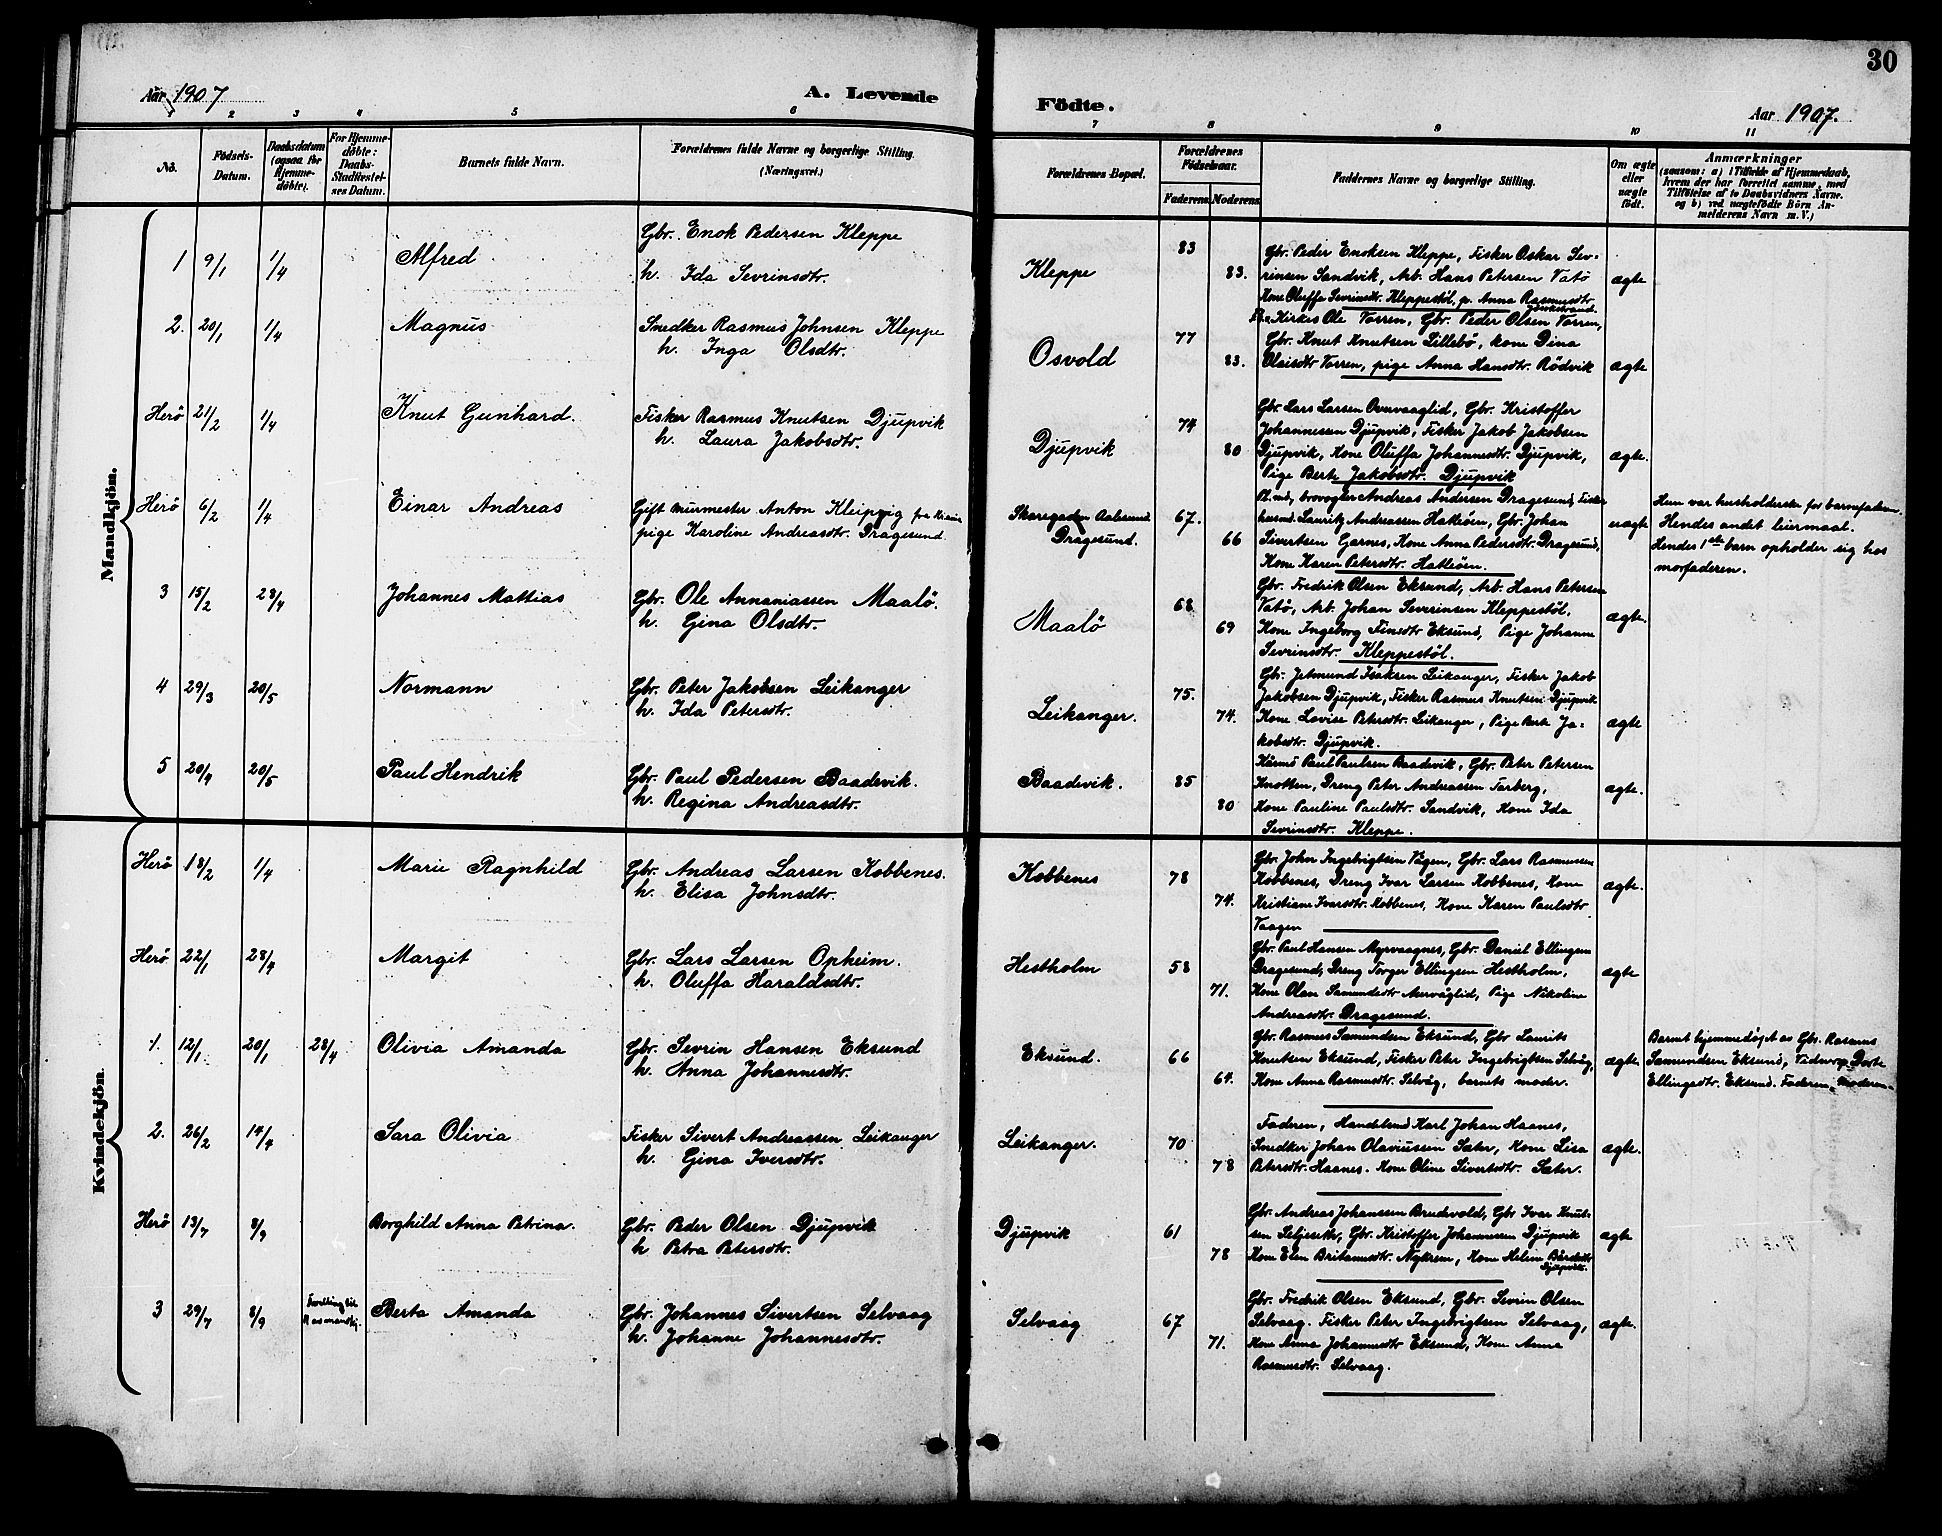 30
Aar 1907
A. Levende
Födte.
Aar 1907.
1 2 3 4 5 6 7 8 9 10 11
No.
Födsels-Datum.
Daabsdatum (ogsaa for Hjemme-döbte).
For Hjemme-döbte: Daabs-Stadfæstel-ses Datum.
Barnets fulde Navn.
Forældrenes fulde Navne og borgerlige Stilling. (Næringsvei.)
Forældrenes Bopæl.
Forældrenes Födselsaar.
Faderens. Moderens.
Faddernes Navne og borgerlige Stilling.
Om ægte eller uægte födt.
Anmærkninger
(saasom: a) i Tilfælde af Hjemmedaab, hvem der har forrettet samme, med Tilföielse af to Daabsvidners Navne, og b) ved uægtefödte Börn An-melderens Navn m. V.)
Mandkjön.
1 9/1 1/4 Alfred
Gbr. Enok Pedersen Kleppe
h. Ida Sevrinsdtr.
Kleppe 83 83.
Gbr. Peder Enoksen Kleppe, Fisker Oskar Sev-
rinsen Sandvik, Arb. Hans Petersen Vatö
Kone Oluffa Sevrinsdtr. Kleppestöl, p. Anna Rasmusdtr.
ægte
2. 20/1 1/4 Magnus
Snedker Rasmus Johnsen Kleppe
h. Inga Olsdtr.
Osvold 77 83.
Kirkes Ole Vorren, Gbr. Peder Olsen Vorren,
Gbr. Knut Knutsen Lillebö, kone Dina
Olaisdtr Vorren, pige Anna Hansdtr. Rödvik
ægte
Herö 21/2 1/4 Knut Gunhard.
Fisker Rasmus Knutsen Djupvik
h. Laura Jakobsdtr.
Djupvik 74 80
Gbr. Lars Larsen Overvaaglid, Gbr. Kristoffer
Johannesen Djupvik, Fisker Jakob Jakobsen
Djupvik, Kone Oluffa Johannesdtr. Djupvik,
Pige Berte Jakobsdtr. Djupvik
ægte.
Herö 6/2 1/4 Einar Andreas
Gift murmester Anton Kleipzig fra
pige Karoline Andreasdtr. Dragesund.
Skaregaden Aalesund
Dragesund.
67. 66
Andreas Andersen Dragesund, Fisker
husmd. Lauritz Andreassen Hatleöen, Gbr. Johan
Sivertsen Garnes, Kone Anna Pedersdtr. Dragesund,
Kone Karen Petersdtr. Hatleöen.
uægte
Hun var husholderske for barnefaderen.
Hendes andet leiermaal.
Hendes 1ste barn opholder sig hos
morfaderen.
3 15/2 28/4 Johannes Mattias
Gbr. Ole Annaniassen Maalö.
h. Gina Olsdtr.
Maalö 68 69
Gbr. Fredrik Olsen Eksund, Arb. Hans Petersen
Vatö, Arb. Johan Severinsen Kleppestöl,
Kone Ingeborg Finsdtr Eksund, Pige Johanne
Sevrinsdtr. Kleppestöl.
ægte.
4 29/3 20/5 Normann
Gbr. Peter Jakobsen Leikanger
h. Ida Petersdtr.
Leikanger. 75. 74.
Gbr. Jetmund Isaksen Leikanger, Fisker Jakob
Jakobsen Djupvik, Fisker Rasmus Knutsen Djupvik
Kone Lovise Petersdtr. Leikanger, Pige Berte Ja-
kobsdtr. Djupvik.
ægte
5 20/4 20/5 Paul Hendrik
Gbr. Paul Pedersen Baadsvik.
h. Regina Andreasdtr.
Baadsvik. 85 80
Paul Paulsen Baadsvik, Gbr. Peter Petersen
Knotten, Dreng Peter Andreassen Tarberg,
Kone Pauline Paulsdtr. Sandvik, Kone Ida
Sevrinsdtr. Kleppe.
ægte.
Kvindekjön.
Herö 18/2 1/4 Marie Ragnhild
Gbr. Andreas Larsen Kobbenes.
h. Elisa Johnsdtr.
Kobbenes 78 74.
Gbr. John Ingebrigtsen Vågen, Gbr. Lars Rasmussen
Kobbenes, Dreng Ivar Larsen Kobbenes, Kone
Kristiane Ivarsdtr. Kobbenes, Kone Karen Paulsdtr
Vaagen
ægte.
Herö 22/1 28/4 Margit
Gbr. Lars Larsen Opheim.
h. Oluffa Haraldsdtr.
Hestholm 58 71.
Gbr. Paul Hansen Myrvaagnes, Gbr. Daniel Ellingsen
Dragesund, Dreng Torger Ellingsen Hestholm,
Kone Olan Samundsdtr Aurvåglid, Pige Nikoline
Andreasdtr. Dragesund.
ægte
1. 12/1 20/1 28/4 Olivia Amanda
Gbr. Sevrin Hansen Eksund
h. Anna Johannesdtr.
Eksund. 66 64.
Gbr. Rasmus Samundsen Eksund, Gbr Laurits
Knutsen Eksund, Fisker Peter Ingebrigtsen Selvåg,
Kone Anna Rasmusdtr. Selvåg, barnets moder.
ægte
Barnet hjemmedöpt av Gbr. Rasmus
Samundsen Eksund, Vidner: Dorte
Ellingsdtr. Eksund. Faderen. Moderen
2. 26/2 14/4 Sara Olivia
Fisker Sivert Andreassen Leikanger
h. Gina Iversdtr.
Leikanger. 70 78
Faderen, Handelsmd Karl Johan Haanes,
Snedker Johan Olavussen Sater, Kone Lisa
Petersdtr. Haanes. Kone Oline Sivertsdtr. Sater.
ægte.
Herö 13/7 8/9 Borghild Anna Petrina.
Gbr. Peder Olsen Djupvik
h Petra Petersdtr.
Djupvik 61 78
Gbr. Andreas Johanssen Brudevold, Gbr Ivar Knut-
sen Seljesetr, Gbr. Kristoffer Johannessen Djupvik
Kone Elen Britanusdtr. Nykrem, Kone Heline Bårdsdtr
Djupvik.
ægte
3 29/7 8/9 Berta Amanda
Gbr. Johannes Sivertsen Selvaag
h. Johanne Johannesdtr.
Selvaag 67 71.
Gbr. Fredrik Olsen Eksund, Gbr. Sevrin Olsen
Selvaag. Fisker Peter Ingebrigtsen Selvaag,
Kone Anna Johannesdtr Eksund, Kone Anna
Rasmusdtr. Selvaag.
ægte.